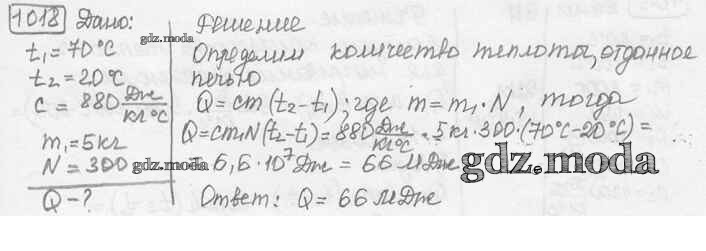 1018 Дано:
t₁=70°C
t₂=20°C
c=880 Дж/кг°C
m₁=5кг
N=300
Q-?
gdz.moda
Решение
Определим количество теплоты, отданное
печью
Q=cm(t₂-t₁); где m=m₁·N, тогда
Q=cm₁N(t₂-t₁)=880 Дж/кг°C·5кг·300·(70°C-20°C)=
=6,6·10⁷Дж=66МДж
gdz.moda
gdz.moda
Ответ: Q=66МДж